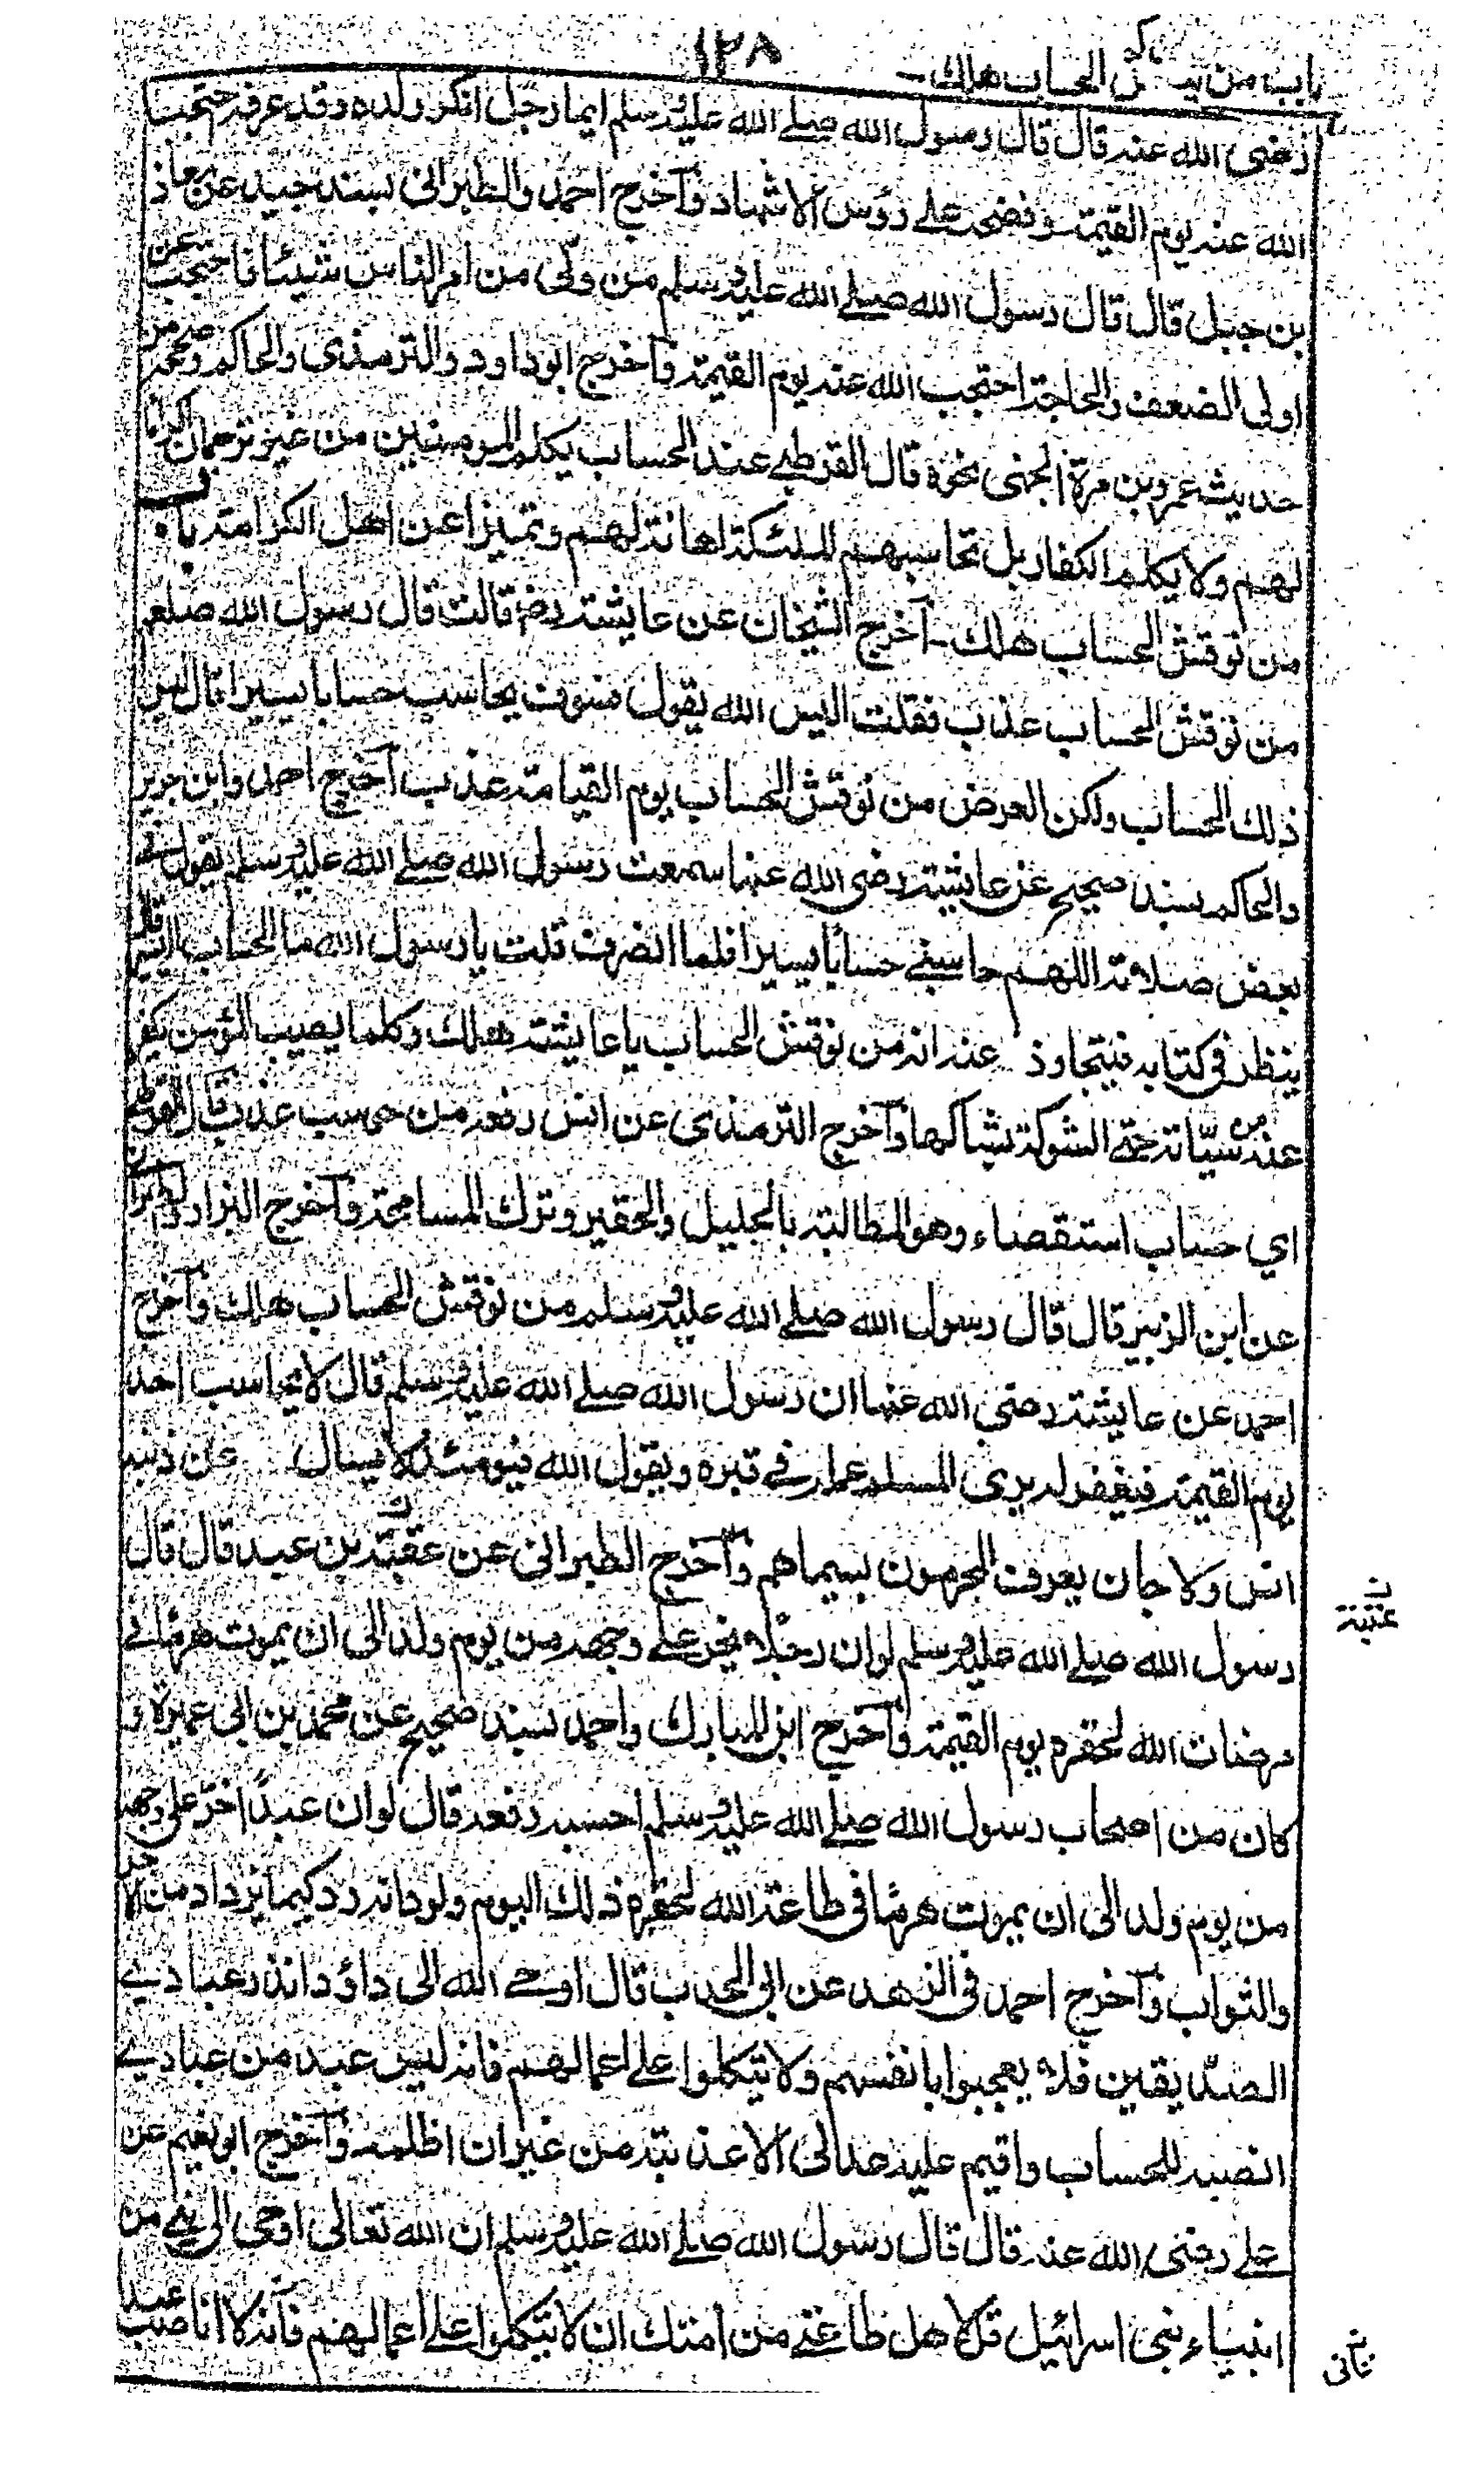 باب من الحساب هلك
١٢٨
رضى الله عنه قال قال رسول الله صلے الله عليه وسلم ايما رجل انكر ولده وقد عرفه احتجب
الله عنه يوم القيمة وفضحه علے رؤس الاشهاد وآخرج احمد والطبرانى بسند جيد عن معاذ
بن جبل قال قال رسول الله صلے الله عليه وسلم من ولى من امر الناس شيئا فاحتجب عن
اولى الضعف والحاجة احتجب الله عنه يوم القيمة وآخرج ابو داود والترمذى والحاكم وصححه من
حديث عمرو بن مرة الجهنى نحوه قال القرطبے عند الحساب يكلم المومنين من غير ترجمان اكراما
لهم ولا يكلم الكفار بل تحاسبهم الملئكة اهانة لهم وتميزا عن اهل الكرامة باب
من نوقش الحساب هلك آخرج الشيخان عن عايشة رض قالت قال رسول الله صلعم
من نوقش الحساب عذب فقلت اليس الله يقول فسوف يحاسب حسابا يسيرا قال ليس
ذلك الحساب ولكن العرض من نوقش الحساب يوم القيامة عذب آخرج احمد وابن جرير
والحاكم بسند صحيح عن عايشة رضى الله عنها سمعت رسول الله صلے الله عليه وسلم يقول فے
بعض صلاته اللهم حاسبنے حسابا يسيرا فلما انصرف قلت يا رسول الله ما الحساب اليسير قال
ينظر فى كتابه فيتجاوز عنه انه من نوقش الحساب يا عايشة هلك وكلما يصيب المؤمن يكفر
عنه من سيّاته حتے الشوكة يشاكها وآخرج الترمذى عن انس رفعه من حوسب عذب قال القرطبے
اي حساب استقصاء وهو المطالبة بالجليل والحقير وترك المسامحة وآخرج البزار والطبرانى
عن ابن الزبير قال قال رسول الله صلے الله عليه وسلم من نوقش الحساب هلك وآخرج
احمد عن عايشة رضى الله عنها ان رسول الله صلے الله عليه وسلم قال لا يحاسب احد
يوم القيمة فيغفر له يرى المسلم عمله فے قبره ويقول الله فيومئذ لا يسال عن ذنبه
انس ولا جان يعرف المجرمون بسيماهم وآخرج الطبرانى عن عقبة بن عبد قال قال
عتبة
رسول الله صلے الله عليه وسلم لو ان رجلا يخر علے وجهه من يوم ولد الى ان يموت هرما فے
مرضات الله لحقره يوم القيمة وآخرج ابن المبارك واحمد بسند صحيح عن محمد بن ابى عميرة و
كان من اصحاب رسول الله صلے الله عليه وسلم احسبه رفعه قال لو ان عبدا خر على وجهه
من يوم ولد الى ان يموت هرما فى طاعة الله لحقره ذلك اليوم ولود انه رد كيما يزداد من الاجر
والثواب وآخرج احمد فى الزهد عن ابى الجعد قال اوحے الله الى داؤد انذر عبادے
الصدّيقين فلا يعجبوا بانفسهم ولا يتكلوا علے اعمالهم فانه ليس عبد من عبادے
انصبه للحساب واقيم عليه عدلى الا عذبته من غير ان اظلمه وآخرج ابو نعيم عن
علے رضى الله عنه قال قال رسول الله صلے الله عليه وسلم ان الله تعالى اوحى الى نبے من
انبياء بنى اسرائيل قل لاهل طاعتے من امتك ان لا يتكلوا علے اعمالهم فانه لا اناصب عبدا